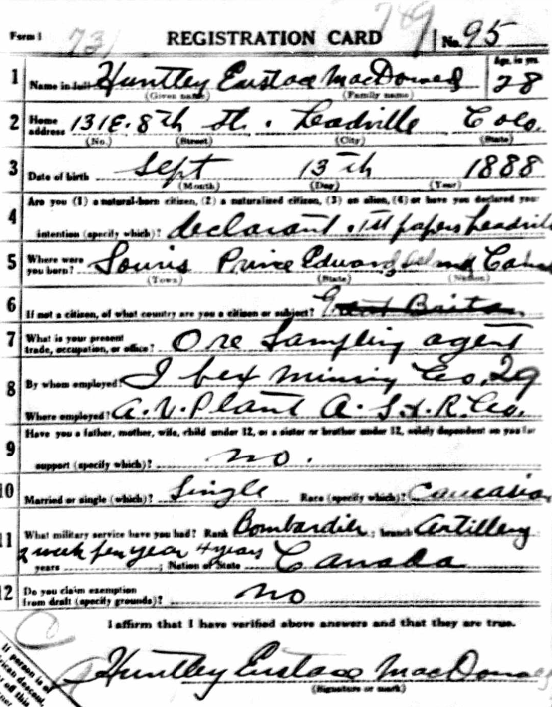 Form 1 731 REGISTRATION CARD 749 No. 95
1 Name in full Huntley Eustace MacDonald Age, in yrs. 28
(Given name) (Family name)
2 Home address 131 E. 8th St. Leadville Colo.
(No.) (Street) (City) (State)
3 Date of birth Sept 13th 1888
(Month) (Day) (Year)
Are you (1) a natural-born citizen, (2) a naturalized citizen, (3) an alien, (4) or have you declared your
4 intention (specify which)? declarant. 1st papers Leadville
5 Where were you born? Souris Prince Edward Island Canada
(Town) (State) (Nation)
6 If not a citizen, of what country are you a citizen or subject? Great Britain
7 What is your present trade, occupation, or office? Ore Sampling agent
8 By whom employed? Ibex Mining Co. 29
Where employed? A.V. Plant A.S.&R. Co.
9 Have you a father, mother, wife, child under 12, or a sister or brother under 12, solely dependent on you for
support (specify which)? no.
10 Married or single (which)? Single Race (specify which)? Caucasian
11 What military service have you had? Rank Bombardier; branch Artillery
2 week per year 4 years years; Nation or State Canada
12 Do you claim exemption from draft (specify grounds)? no
I affirm that I have verified above answers and that they are true.
Huntley Eustace MacDonald
(Signature or mark)
If person is of
African descent,
off this